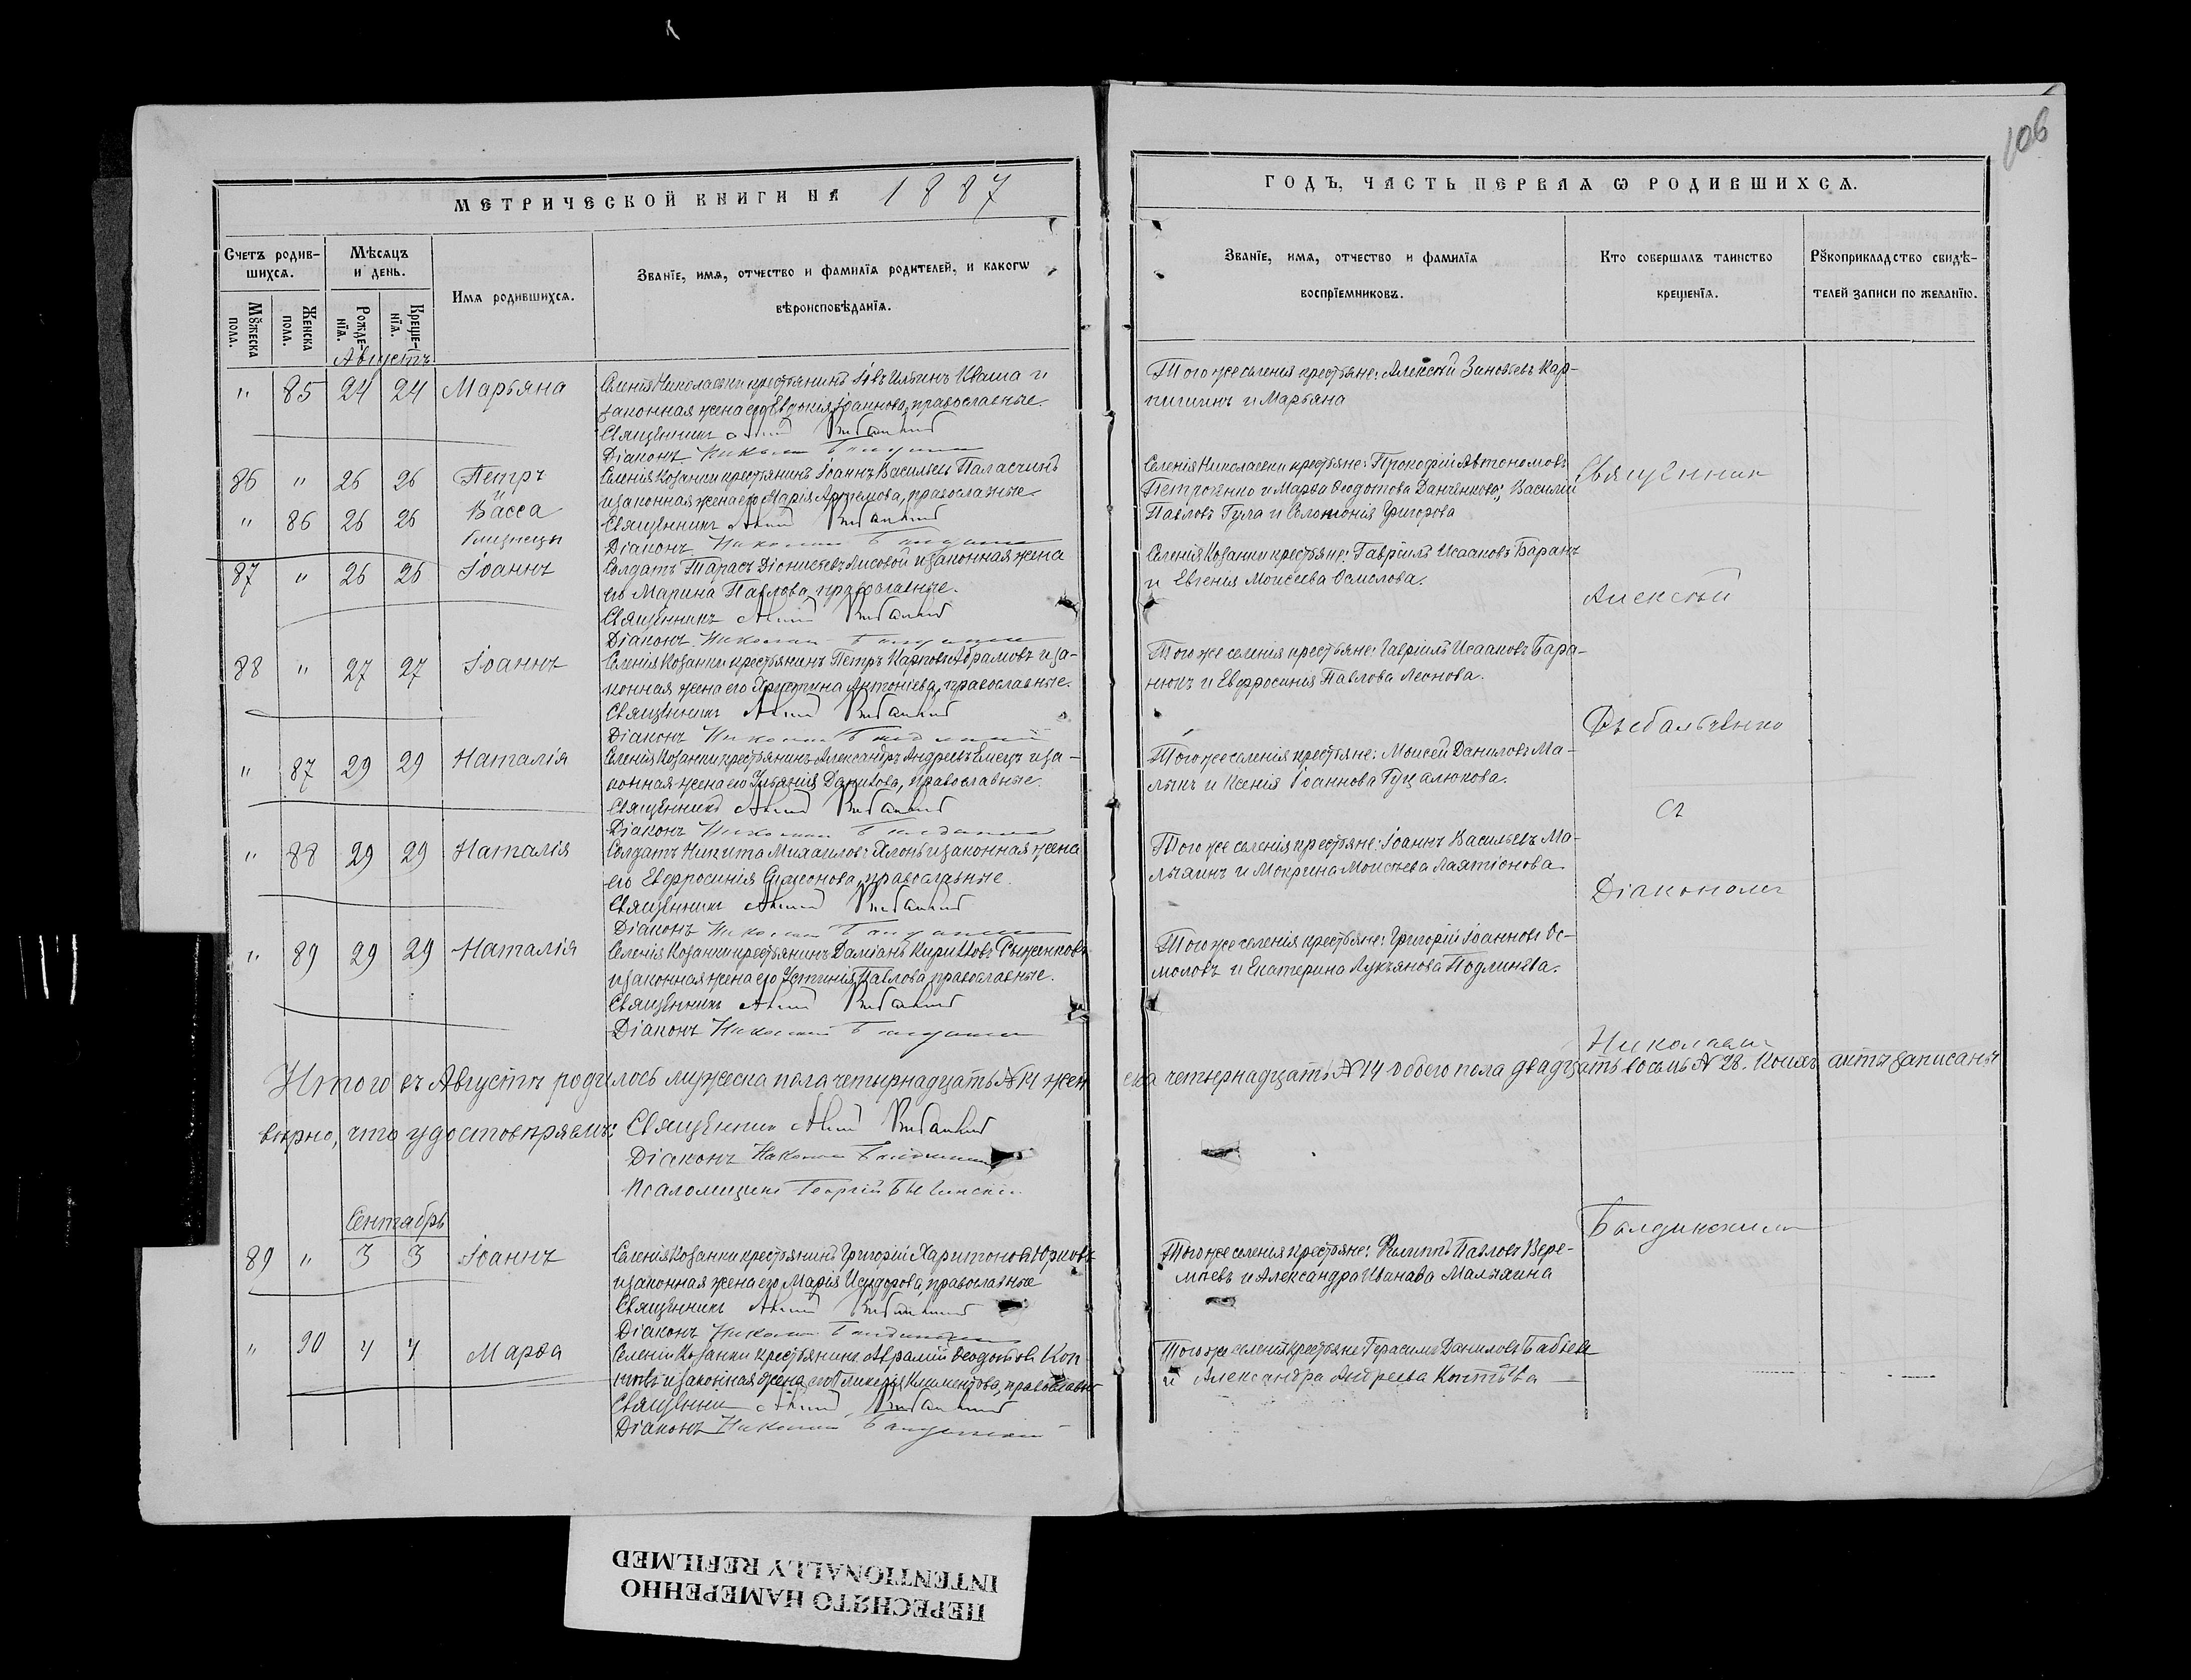 106
МЕТРИЧЕСКОЙ КНИГИ НА 1887
ГОДЪ, ЧАСТЬ ПЕРВАѦ Ѡ РОДИВШИХСѦ.
Счетъ родив-
шихсѧ.
Мѣсѧцъ
и день.
Мꙋжеска
пола.
Женска
пола.
Рожде-
нїѧ.
Креще-
нїѧ.
Имѧ родившихсѧ.
Званїе, имѧ, отчество и фамилїѧ родителей, и какогѡ
вѣроисповѣданїѧ.
Званїе, имѧ, отчество и фамилїѧ
воспрїемниковъ.
Кто совершалъ таинство
крещенїѧ.
Рꙋкоприкладство свидѣ-
телей записи по желанїю.
Августъ
" 85 24 24 Марьяна
Селенія Николаевки крестьянинъ Іовъ Ильинъ Иваша и
законная жена его Евдокія Іоаннова, православные.
Священникъ
Діаконъ Николай
Того же селенія крестьяне: Алексій Зиновьевъ Кар-
пишинъ и Марьяна
86 " 26 26 Петръ
и
" 86 26 26 Васса
близнецы
Селенія Козанки крестьянинъ Іоаннъ Васильевъ Паласчинъ
и законная жена его Марія Артемова, православные.
Священникъ
Діаконъ Николай
Селенія Николаевки крестьяне: Прокофій Автономовъ
Петренко и Марѳа Ѳеодотова Данченкова; Василій
Павловъ Гула и Соломонія Григорова
87 " 26 26 Іоаннъ
Солдатъ Тарасъ Діонисіевъ Лисовой и законная жена
его Марина Павлова, православные.
Священникъ
Діаконъ Николай
Селенія Козанки крестьяне: Гавріилъ Исааковъ Баранъ
и Евгенія Моисеева Осмолова.
88 " 27 27 Іоаннъ
Селенія Козанки крестьянинъ Петръ Карповъ Абрамовъ и за-
конная жена его Христина Антоніева, православные.
Священникъ
Діаконъ Николай
Того же селенія крестьяне: Гавріилъ Исааковъ Бара-
нюкъ и Евфросинія Павлова Леонова.
" 87 29 29 Наталія
Селенія Козанки крестьянинъ Александръ Андреевъ Емецъ и за-
конная жена его Ульянія Данилова, православные.
Священникъ
Діаконъ Николай
Того же селенія крестьяне: Моисей Даниловъ Ма-
лыкъ и Ксенія Іоаннова Гуцалюкова.
" 88 29 29 Наталія
Солдатъ Никита Михаиловъ и законная жена
его Евфросинія Симеонова, православные.
Священникъ
Діаконъ Николай
Того же селенія крестьяне: Іоаннъ Васильевъ Ма-
и Мокрина Моисеева
" 89 29 29 Наталія
Селенія Козанки крестьянинъ Даміанъ Кириловъ Рыженковъ
и законная жена его Устинія Павлова, православные.
Священникъ
Діаконъ Николай
Того же селенія крестьяне: Григорій Іоанновъ Ос-
моловъ и Екатерина Лукьянова Подлинева.
Священник
Алексѣй
съ
Діакономъ
Николаемъ
Итого въ Августѣ родилось мужеска пола четырнадцать № 14 жен
ска четырнадцать № 14 обоего пола двадцать восемь № 28. Коихъ акты записаны
вѣрно, что удостовѣряемъ: Священник
Діаконъ Николай
Псаломщикъ Георгій
Сентябрь
89 " 3 3 Іоаннъ
Селенія Козанки крестьянинъ Григорій Харитоновъ Юрковъ
и законная жена его Марія Исидорова, православные
Священникъ
Діаконъ Николай
Того же селенія крестьяне: Филиппъ Павловъ Вере-
и Александра Иванова
" 90 4 4 Марѳа
Селенія Козанки крестьянинъ Авраміи Ѳеодотовъ Коп
и законная жена его Гликерія Климентова, православн
Священник
Діаконъ Николай
Того же селенія крестьяне Герасимъ Даниловъ Бабьевъ
и Александра Андреева
ПЕРЕСНЯТО НАМЕРЕННО
INTENTIONALLY REFILMED